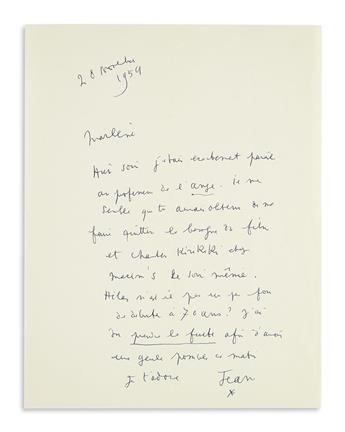 28 Novembre
1959
Marlene
Hier soir j'étais exactement pareil
au professeur de l'ange. Je me
semble que tu aurais obtenu de me
faire quitter le banque de film
et chanter Kirikiki chez
Maxim's le soir même.
Hélas n'est il pas un peu fou
de débuter à 70 ans? J'ai
du prendre la fuite afin d'avoir
une gueule possible ce matin
Je t'adore Jean
*